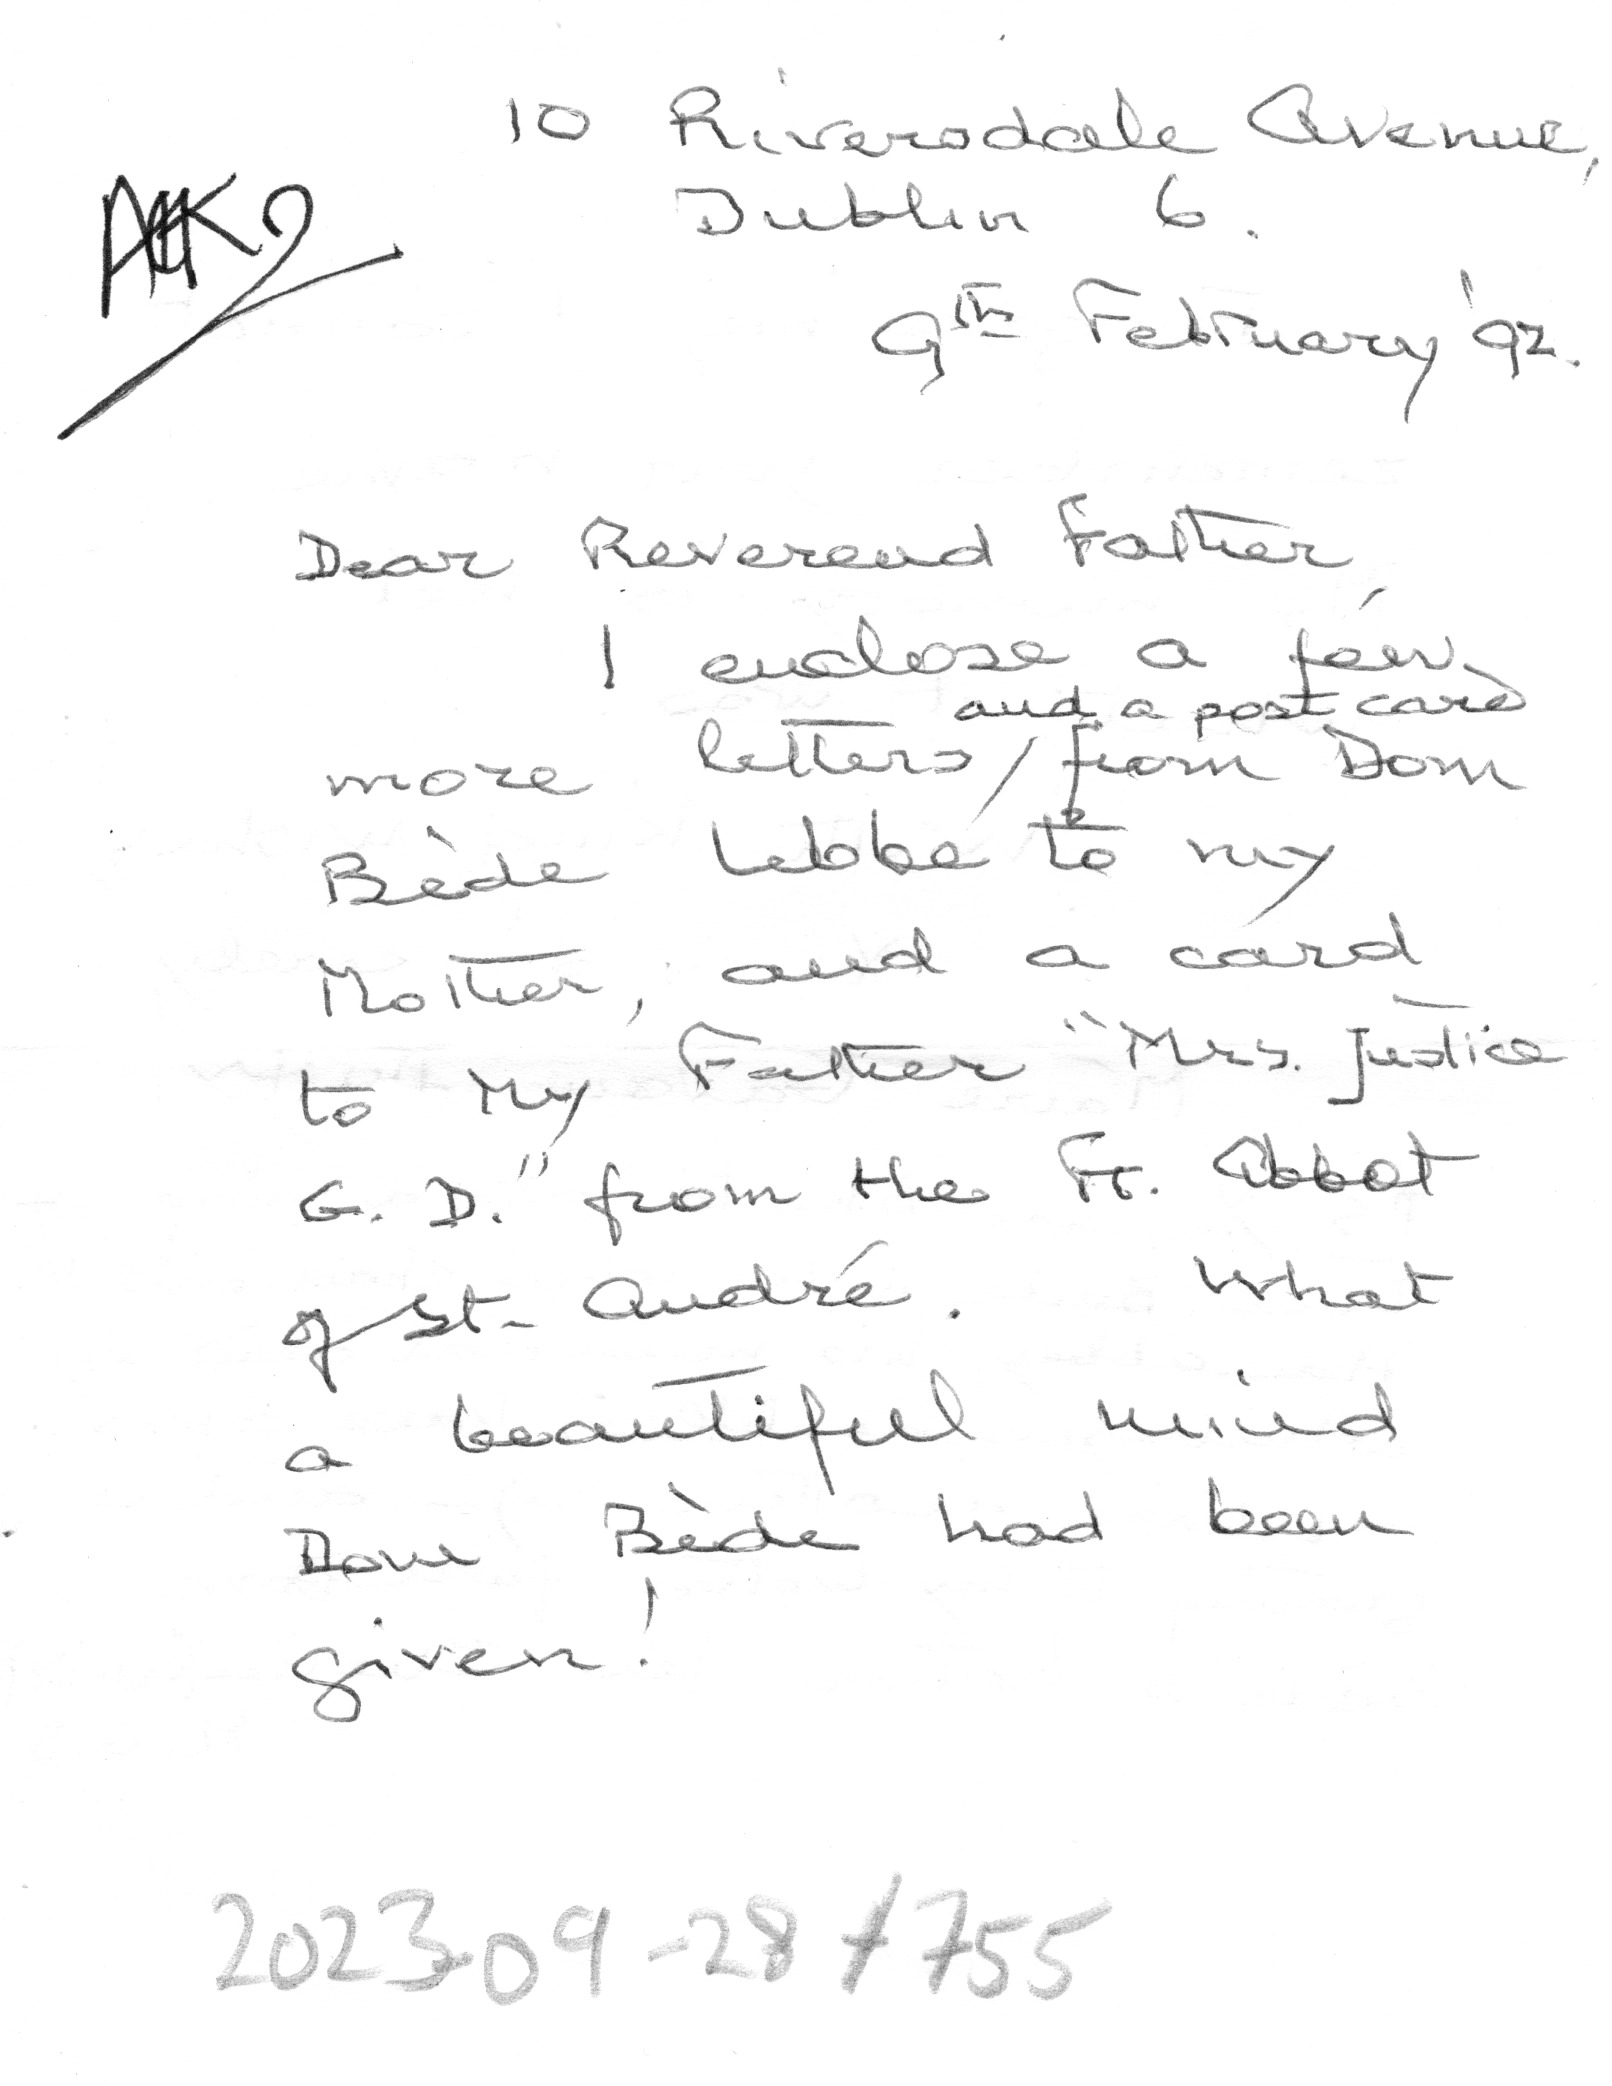 10 Riversdale Avenue,
Dublin 6.
ACK
9th February '92.
Dear Reverend Father,
I enclose a few
and a post card
more letters / from Dom
Bède Lebbe to my
Mother, and a card
to My Father "Mrs. Justice
G. D." from the Fr. Abbot
of St. André. What
a beautiful mind
Dom Bède had been
given!
2023-09-28/755